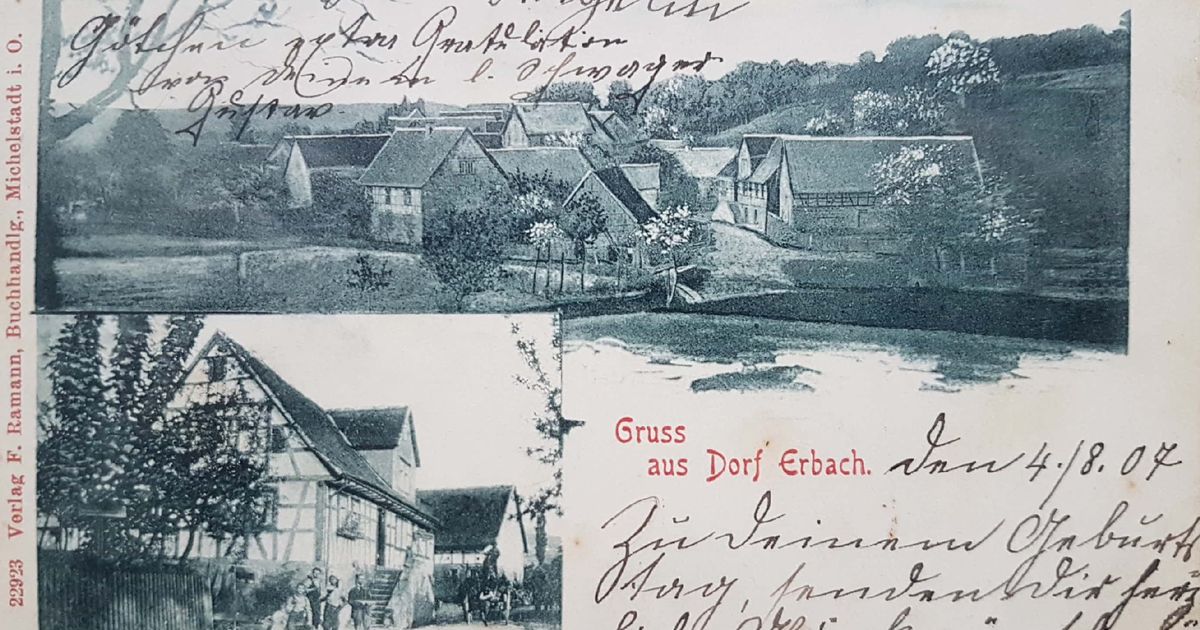 Götchen extra Gratulation
von deinem l. Schwager
Gustav.
22923 Verlag F. Ramann, Buchhandlg., Michelstadt i. O.
Gruss
aus Dorf Erbach. den 4./8. 07
Zu deinem Geburts
tag, senden Dir herz